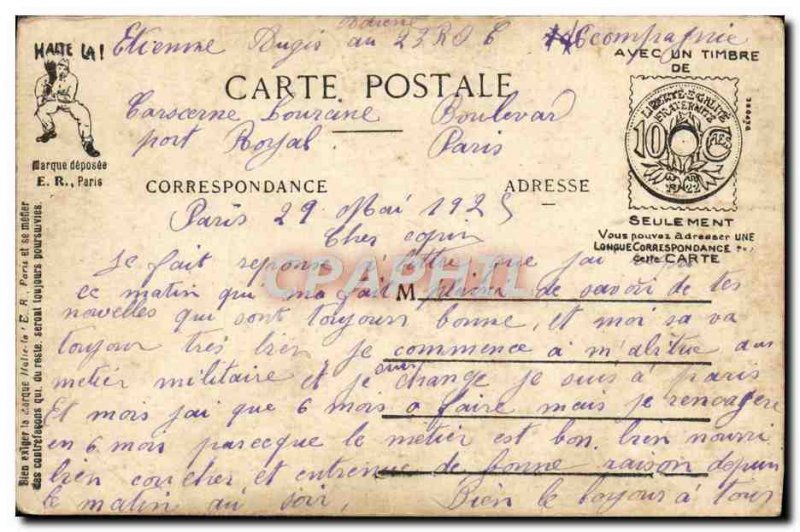 HALTE LA!
Etienne Bugis au 23 R I C 6 compagnie
AVEC UN TIMBRE
DE
CARTE POSTALE
LIBERTE-EGALITE
FRATERNITE
10 CMES
1922
DÉPOSÉ
Carscerne Lourcine Boulevar
port Royal Paris
Marque déposée
E. R., Paris
CORRESPONDANCE ADRESSE
SEULEMENT
Vous pouvez adresser UNE
LONGUE CORRESPONDANCE
Cette CARTE
Paris 29 Mai 1925
Cher
CPAPHIL
Je fait reponse a que jai
ce matin qui me fait M plaisir de savoir de tes
nouvelles qui sont toujours bonne, et moi sa va
toujour très bien, je commence a m'abitue au
metier militaire et je change je suis a paris
Et mois jai que 6 mois a faire mais je rencagere
en 6 mois parceque le metier est bon bien nourri
bien coucher et entrenue de bonne raison depuis
le matin au soir, Bien le bonjour a tous
Bien exiger la marque Halte-là ! E. R. Paris et se méfier
des contrefaçons qui, du reste, seront toujours poursuivies.